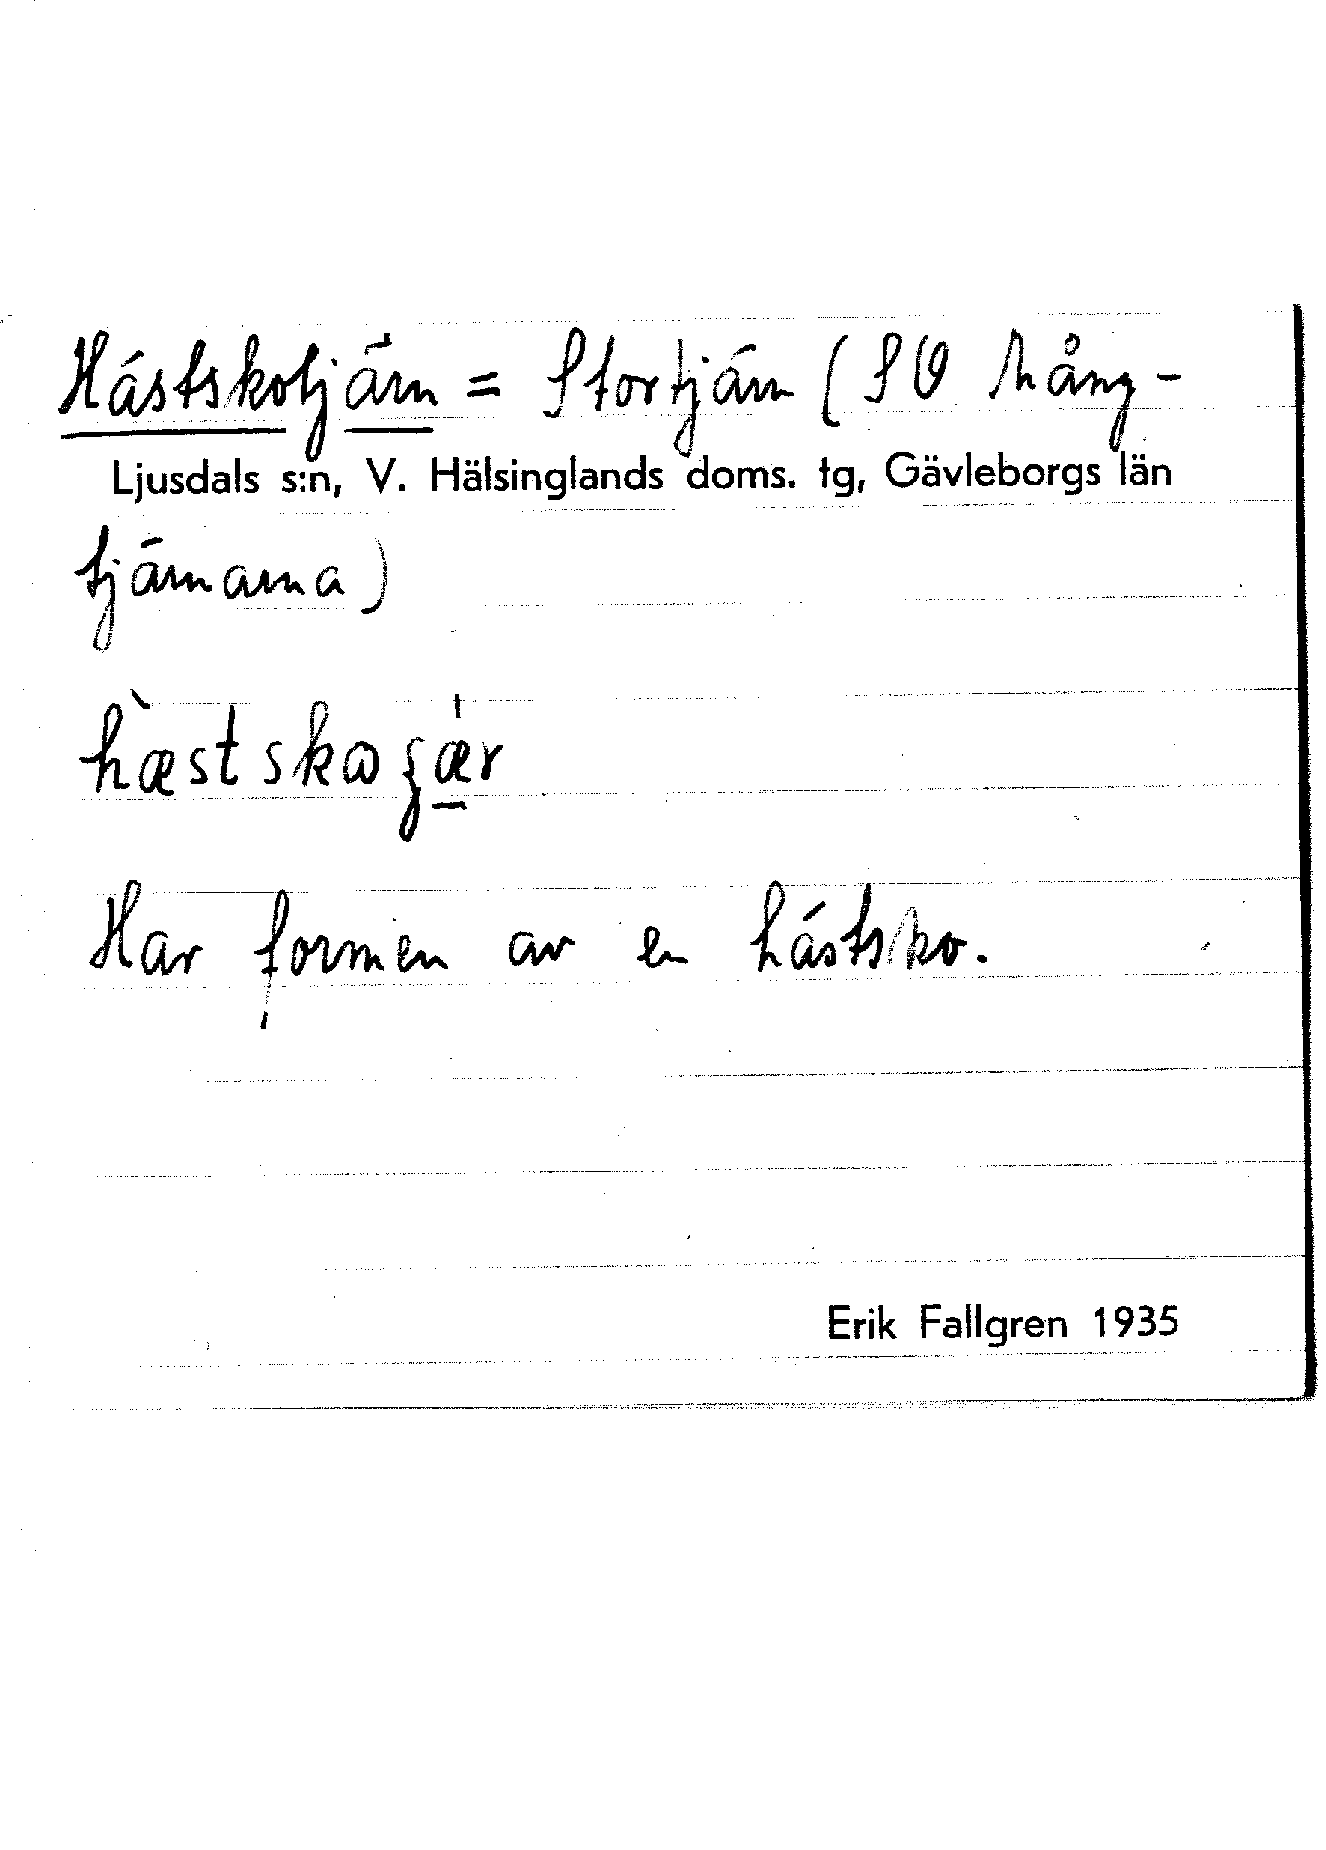 Hästskotjärn = Stortjärn (SO Mång-
Ljusdals s:n, V. Hälsinglands doms. tg, Gävleborgs län
tjärnarna)
Har formen av en hästsko.
Erik Fallgren 1935